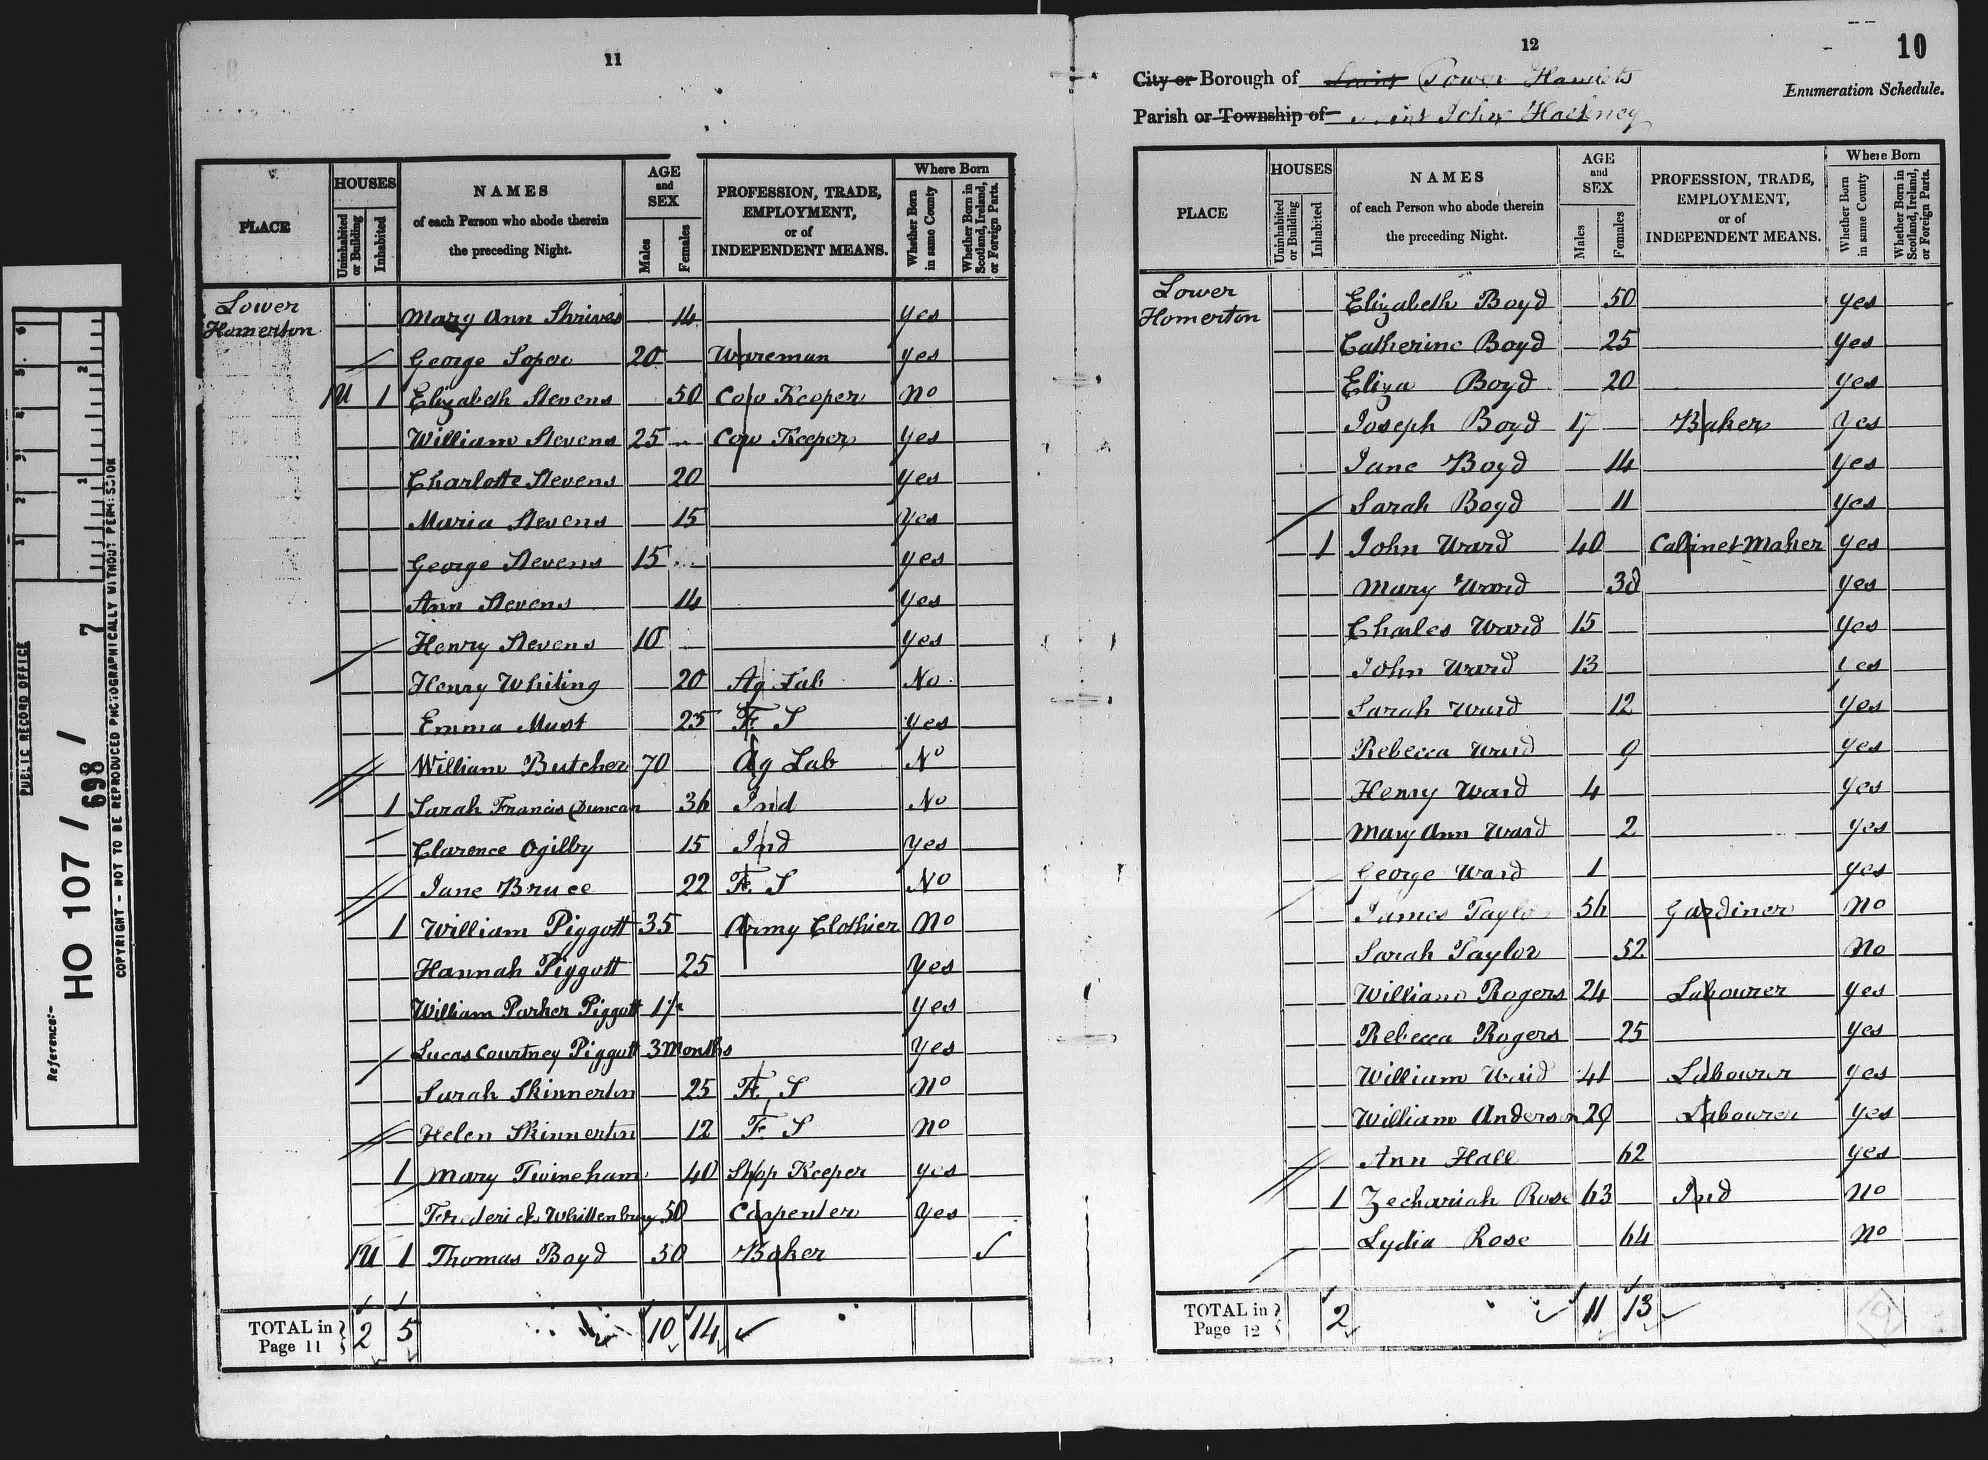 11
PLACE
HOUSES
Uninhabited or Building
Inhabited
NAMES
of each Person who abode therein
the preceding Night.
AGE
and
SEX
Males
Females
PROFESSION, TRADE,
EMPLOYMENT,
or of
INDEPENDENT MEANS.
Where Born
Whether Born in same County
Whether Born in Scotland, Ireland, or Foreign Parts.
Lower
Homerton
Mary Ann Shrives 14 yes
George Soper 20 Wareman yes
1U 1 Elizabeth Stevens 50 Cow Keeper no
William Stevens 25 Cow Keeper yes
Charlotte Stevens 20 yes
Maria Stevens 15 yes
George Stevens 15 yes
Ann Stevens 14 yes
Henry Stevens 10 yes
Henry Whiting 20 Ag Lab No
Emma Must 25 F S yes
William Butcher 70 Ag Lab No
1 Sarah Francis Duncan 36 Ind No
Clarence Ogilby 15 Ind yes
Jane Bruce 22 F S No
1 William Piggott 35 Army Clothier no
Hannah Piggott 25 yes
William Parker Piggott yes
Lucas Courtney Piggott 3 Months yes
Sarah Skinnerton 25 F S no
Helen Skinnerton 12 F S no
1 Mary Twineham 40 Shop Keeper yes
Frederick Whittenbury 50 Carpenter yes
1U 1 Thomas Boyd 50 Baker ✓
TOTAL in Page 11 2 5 10 14
12
10
City or Borough of Saint Tower Hamlets
Enumeration Schedule.
Parish or Township of Saint John Hackney
PLACE
HOUSES
Uninhabited or Building
Inhabited
NAMES
of each Person who abode therein
the preceding Night.
AGE
and
SEX
Males
Females
PROFESSION, TRADE,
EMPLOYMENT,
or of
INDEPENDENT MEANS.
Where Born
Whether Born in same County
Whether Born in Scotland, Ireland, or Foreign Parts.
Lower
Homerton
Elizabeth Boyd 50 yes
Catherine Boyd 25 yes
Eliza Boyd 20 yes
Joseph Boyd 17 Baker yes
Jane Boyd 14 yes
Sarah Boyd 11 yes
1 John Ward 40 Cabinet Maker yes
Mary Ward 38 yes
Charles Ward 15 yes
John Ward 13 yes
Sarah Ward 12 yes
Rebecca Ward 9 yes
Henry Ward 4 yes
Mary Ann Ward 2 yes
George Ward 1 yes
James Taylor 56 Gardiner no
Sarah Taylor 52 no
William Rogers 24 Labourer yes
Rebecca Rogers 25 yes
William Ward 41 Labourer yes
William Anderson 29 Labourer yes
Ann Hall 62 yes
1 Zechariah Rose 63 Ind no
Lydia Rose 64 no
TOTAL in Page 12 2 11 13
PUBLIC RECORD OFFICE
Reference:-
HO 107 / 698 / 7
COPYRIGHT - NOT TO BE REPRODUCED PHOTOGRAPHICALLY WITHOUT PERMISSION